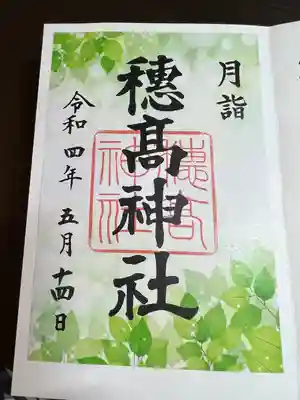 月詣
穂髙神社
穂高神社
令和四年 五月 十四日